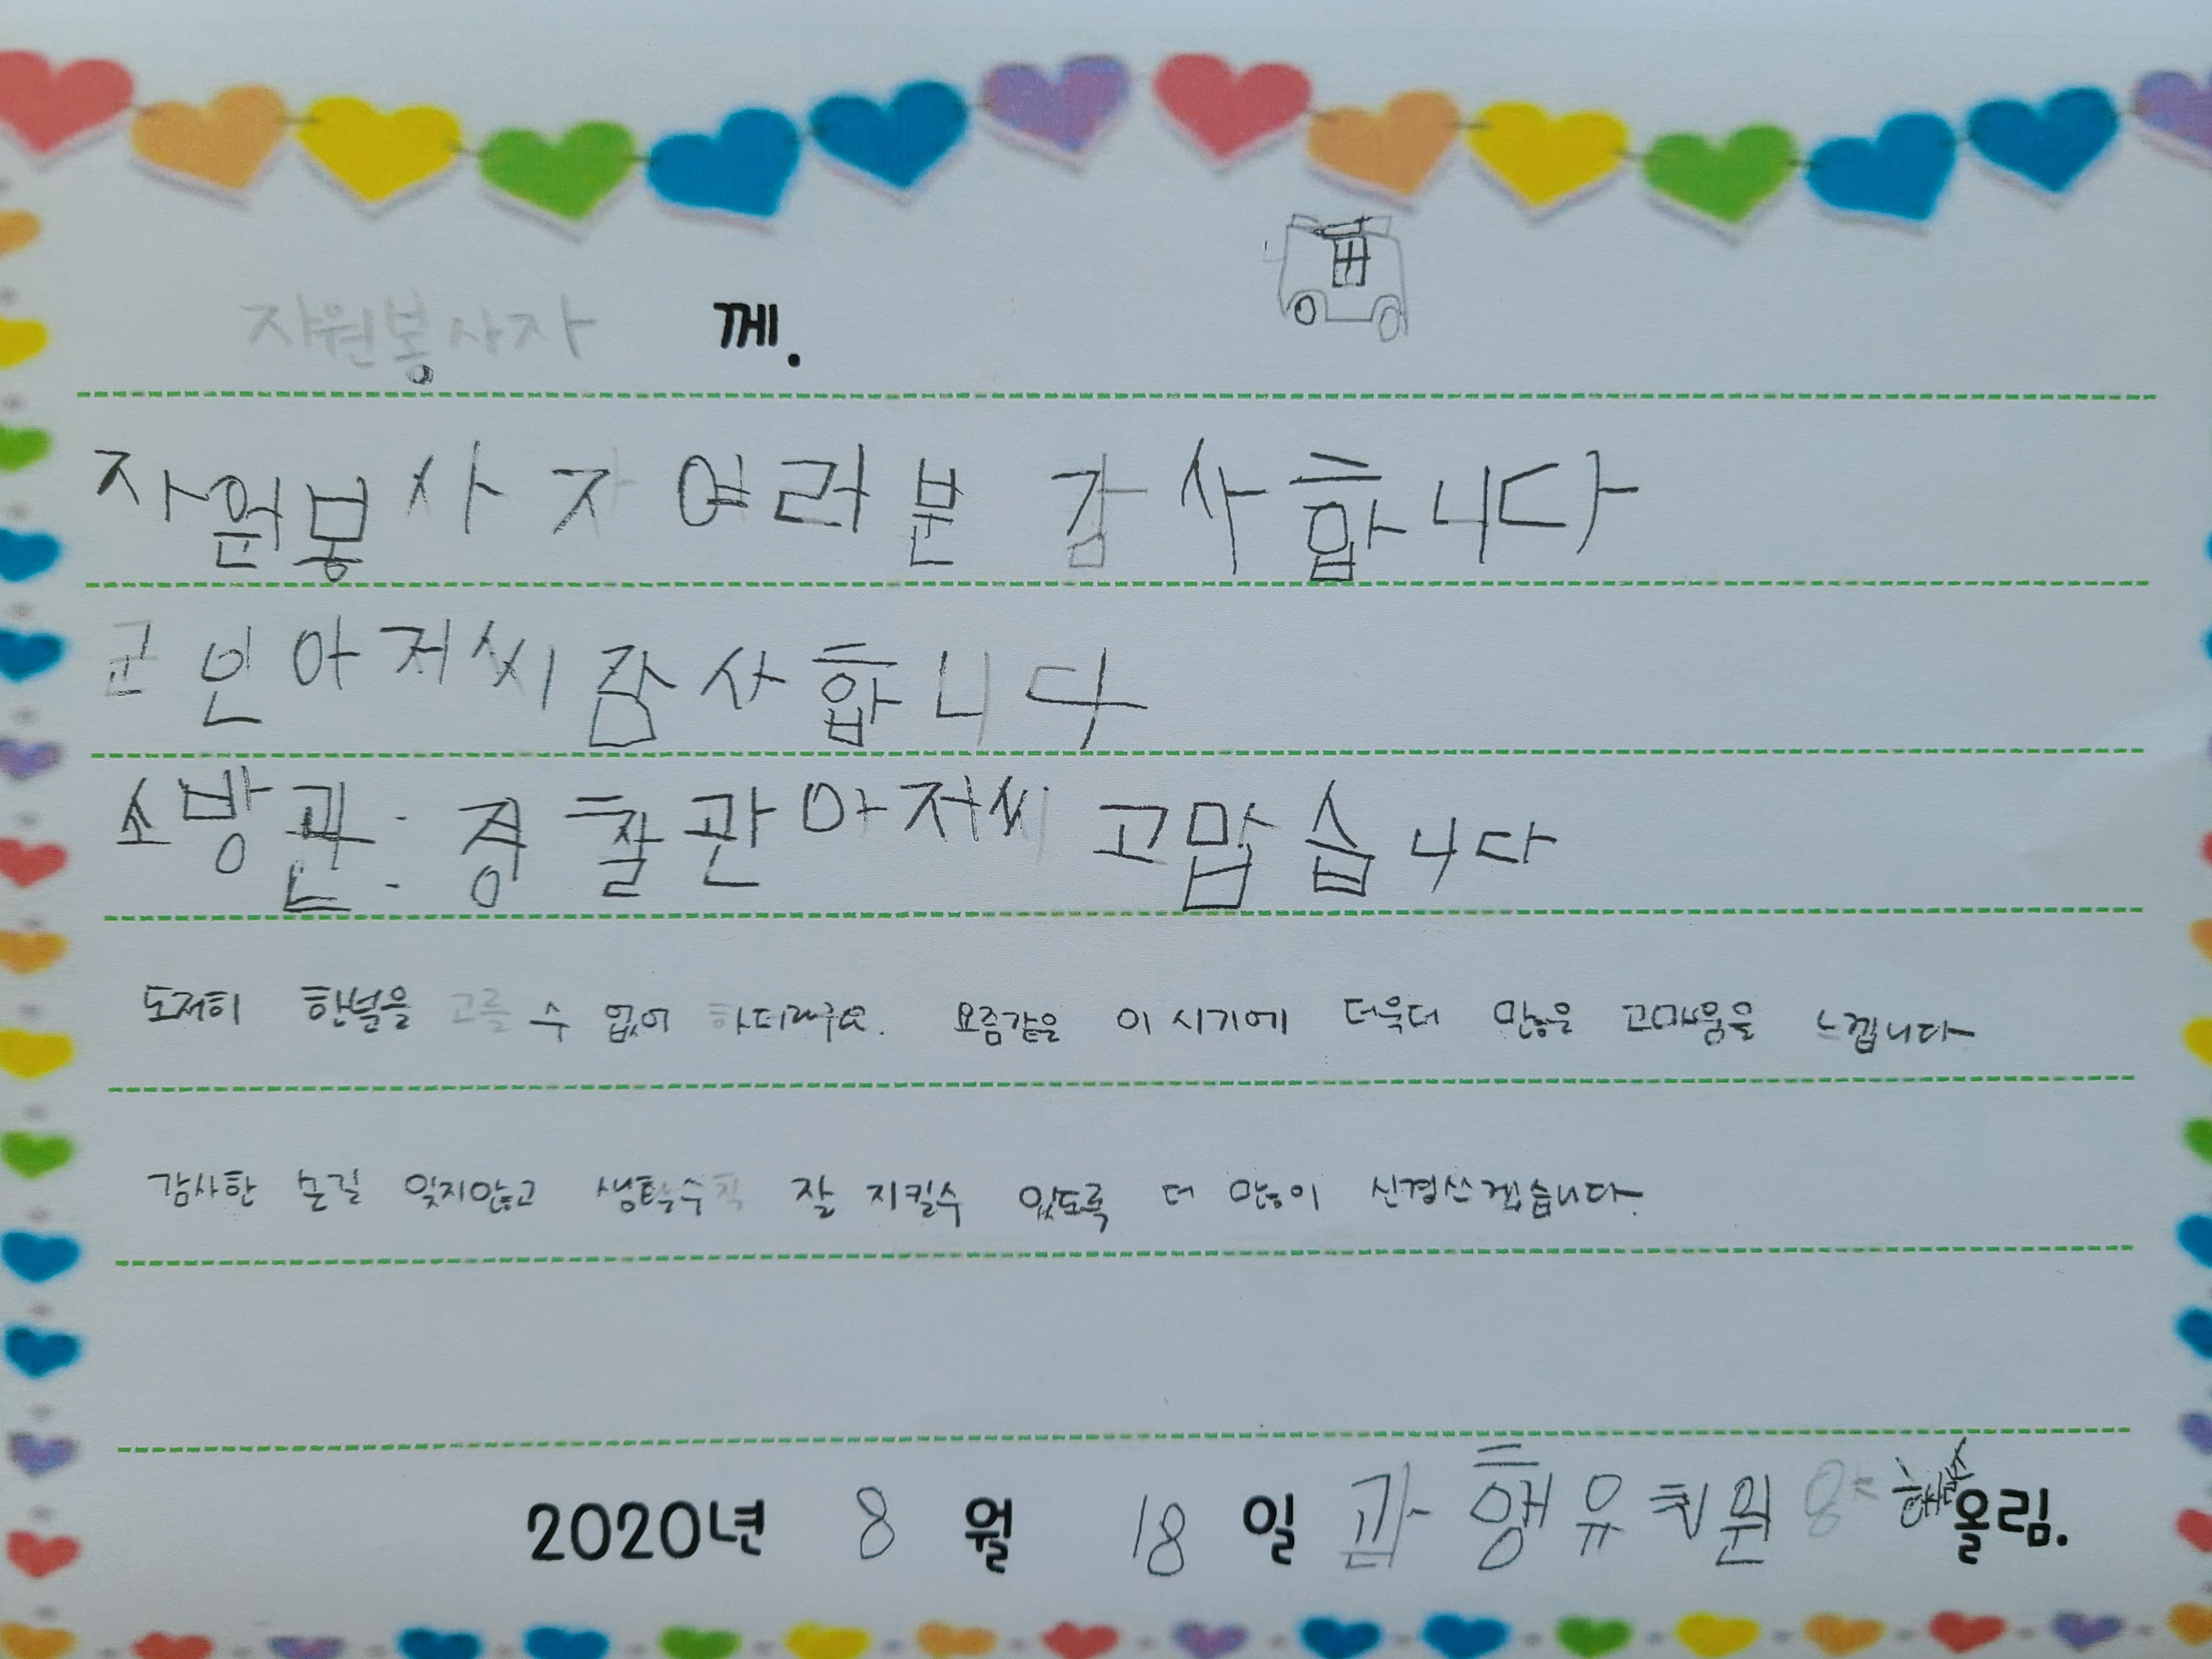 자원봉사자 께.
자원봉사자 여러분 감사합니다
군인아저씨 감사합니다
소방관: 경찰관아저씨 고맙습니다
도저히 한분을 고를 수 없어 하더라구요. 요즘같은 이 시기에 더욱더 많은 고마움을 느낍니다
감사한 손길 잊지않고 생활수칙 잘 지킬수 있도록 더 많이 신경쓰겠습니다.
2020년 8 월 18 일 관행유치원 올림.